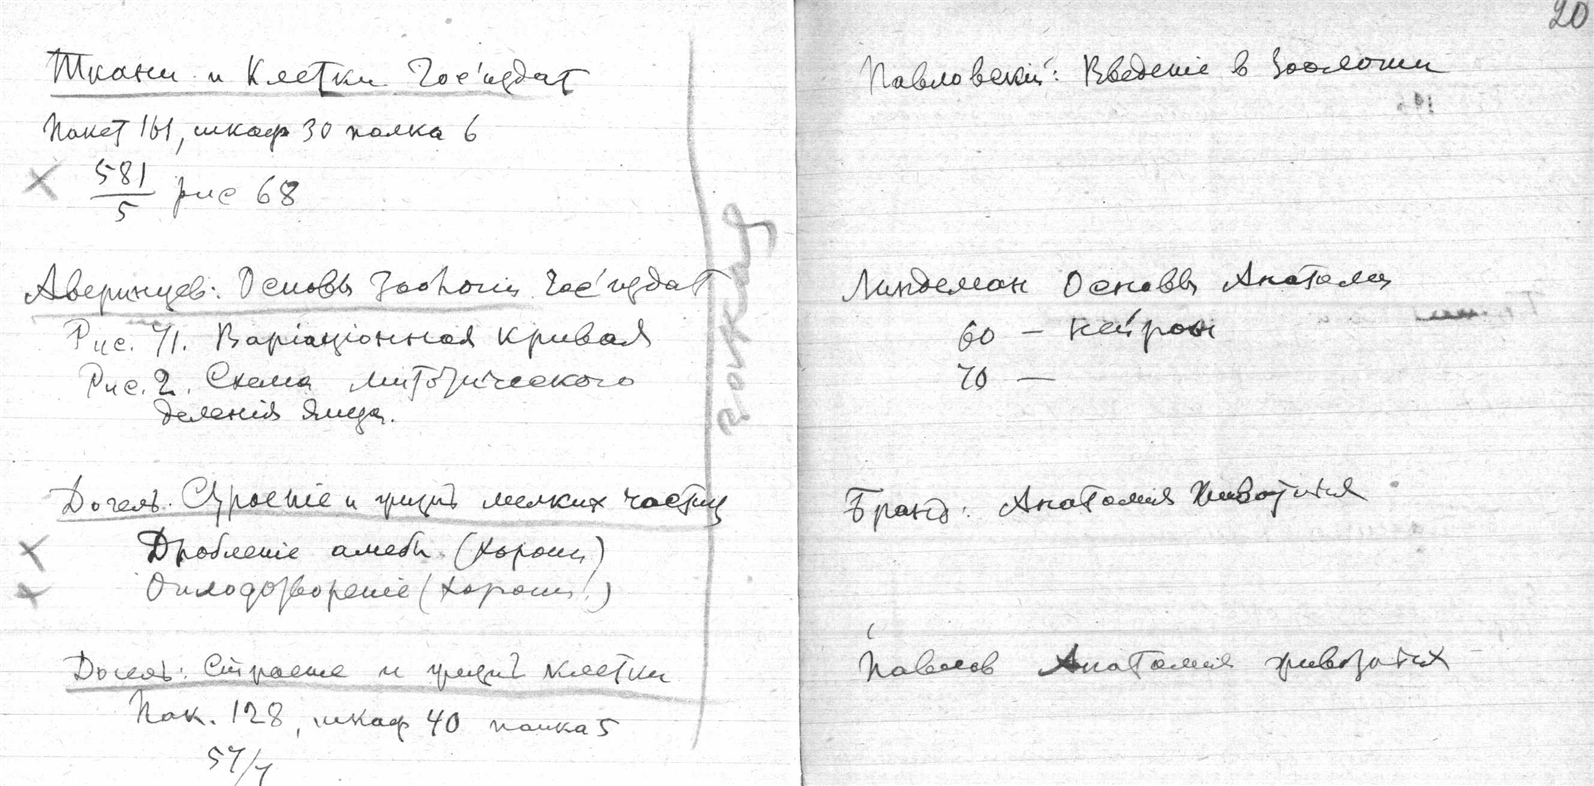 Ткани и Клетки Гос'издат
Пакет 161, шкаф 30 полка 6
581
5
рис 68
Аверинцев: Основы Зоологіи Гос'издат
Рис. 71. Варіаціонная кривая
Рис. 2. Схема митотического
деленія яйца.
Догель. Строеніе и мелких частиц
Дробленіе амебы. (Хорош)
Оплодотвореніе (Хорош!)
Догель: Строеніе и клетки
Пак. 128, шкаф 40 полка 5
57/7
20
Павловскій: Введеніе в Зоологии
Линдеман Основы Анатоміи
60 — нейрон
70 —
Бранд: Анатомія Животных
Анатомия животных